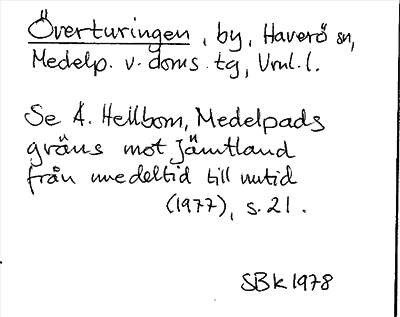 Överturingen, by, Haverö sn,
Medelp. v. doms. tg, Vml. l.
Se A. Hellbom, Medelpads
gräns mot Jämtland
från medeltid till nutid
(1977), s. 21.
SBk 1978